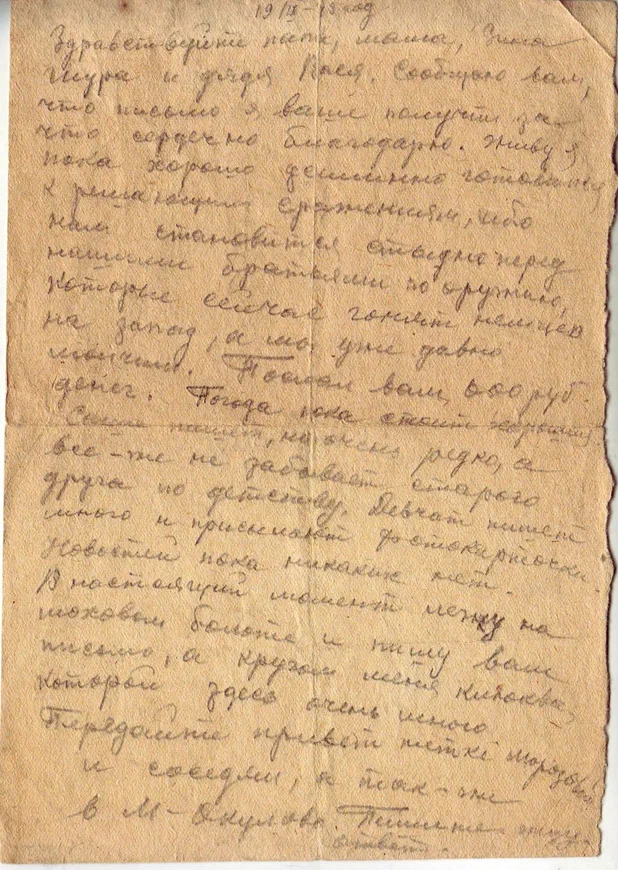 19/IX-43 год
Здравствуйте папа, мама, Зина
Шура и дядя Вася. Сообщаю вам,
что письмо я ваше получил за
что сердечно благодарю. Живу я
пока хорошо готовимся
к решающим сражениям, ибо
нам становится стыдно перед
нашими братьями по оружию,
которые сейчас гонят немцев
на запад, а мы уже давно
молчим. Послал вам, 600 руб.
денег. Погода пока стоит хорошая
Саша пишет, но очень редко, а
все-же не забывает старого
друга по детству. Девчат пишет
много и присылают фотокарточки.
Новостей пока никаких нет.
В настоящий момент лежу на
моховом болоте и пишу вам
письмо, а кругом меня клюква,
которой здесь очень много
Передайте привет тетке Морозовой
и соседям, а так-же
в М-Окулово. Пишите жду
ответ.